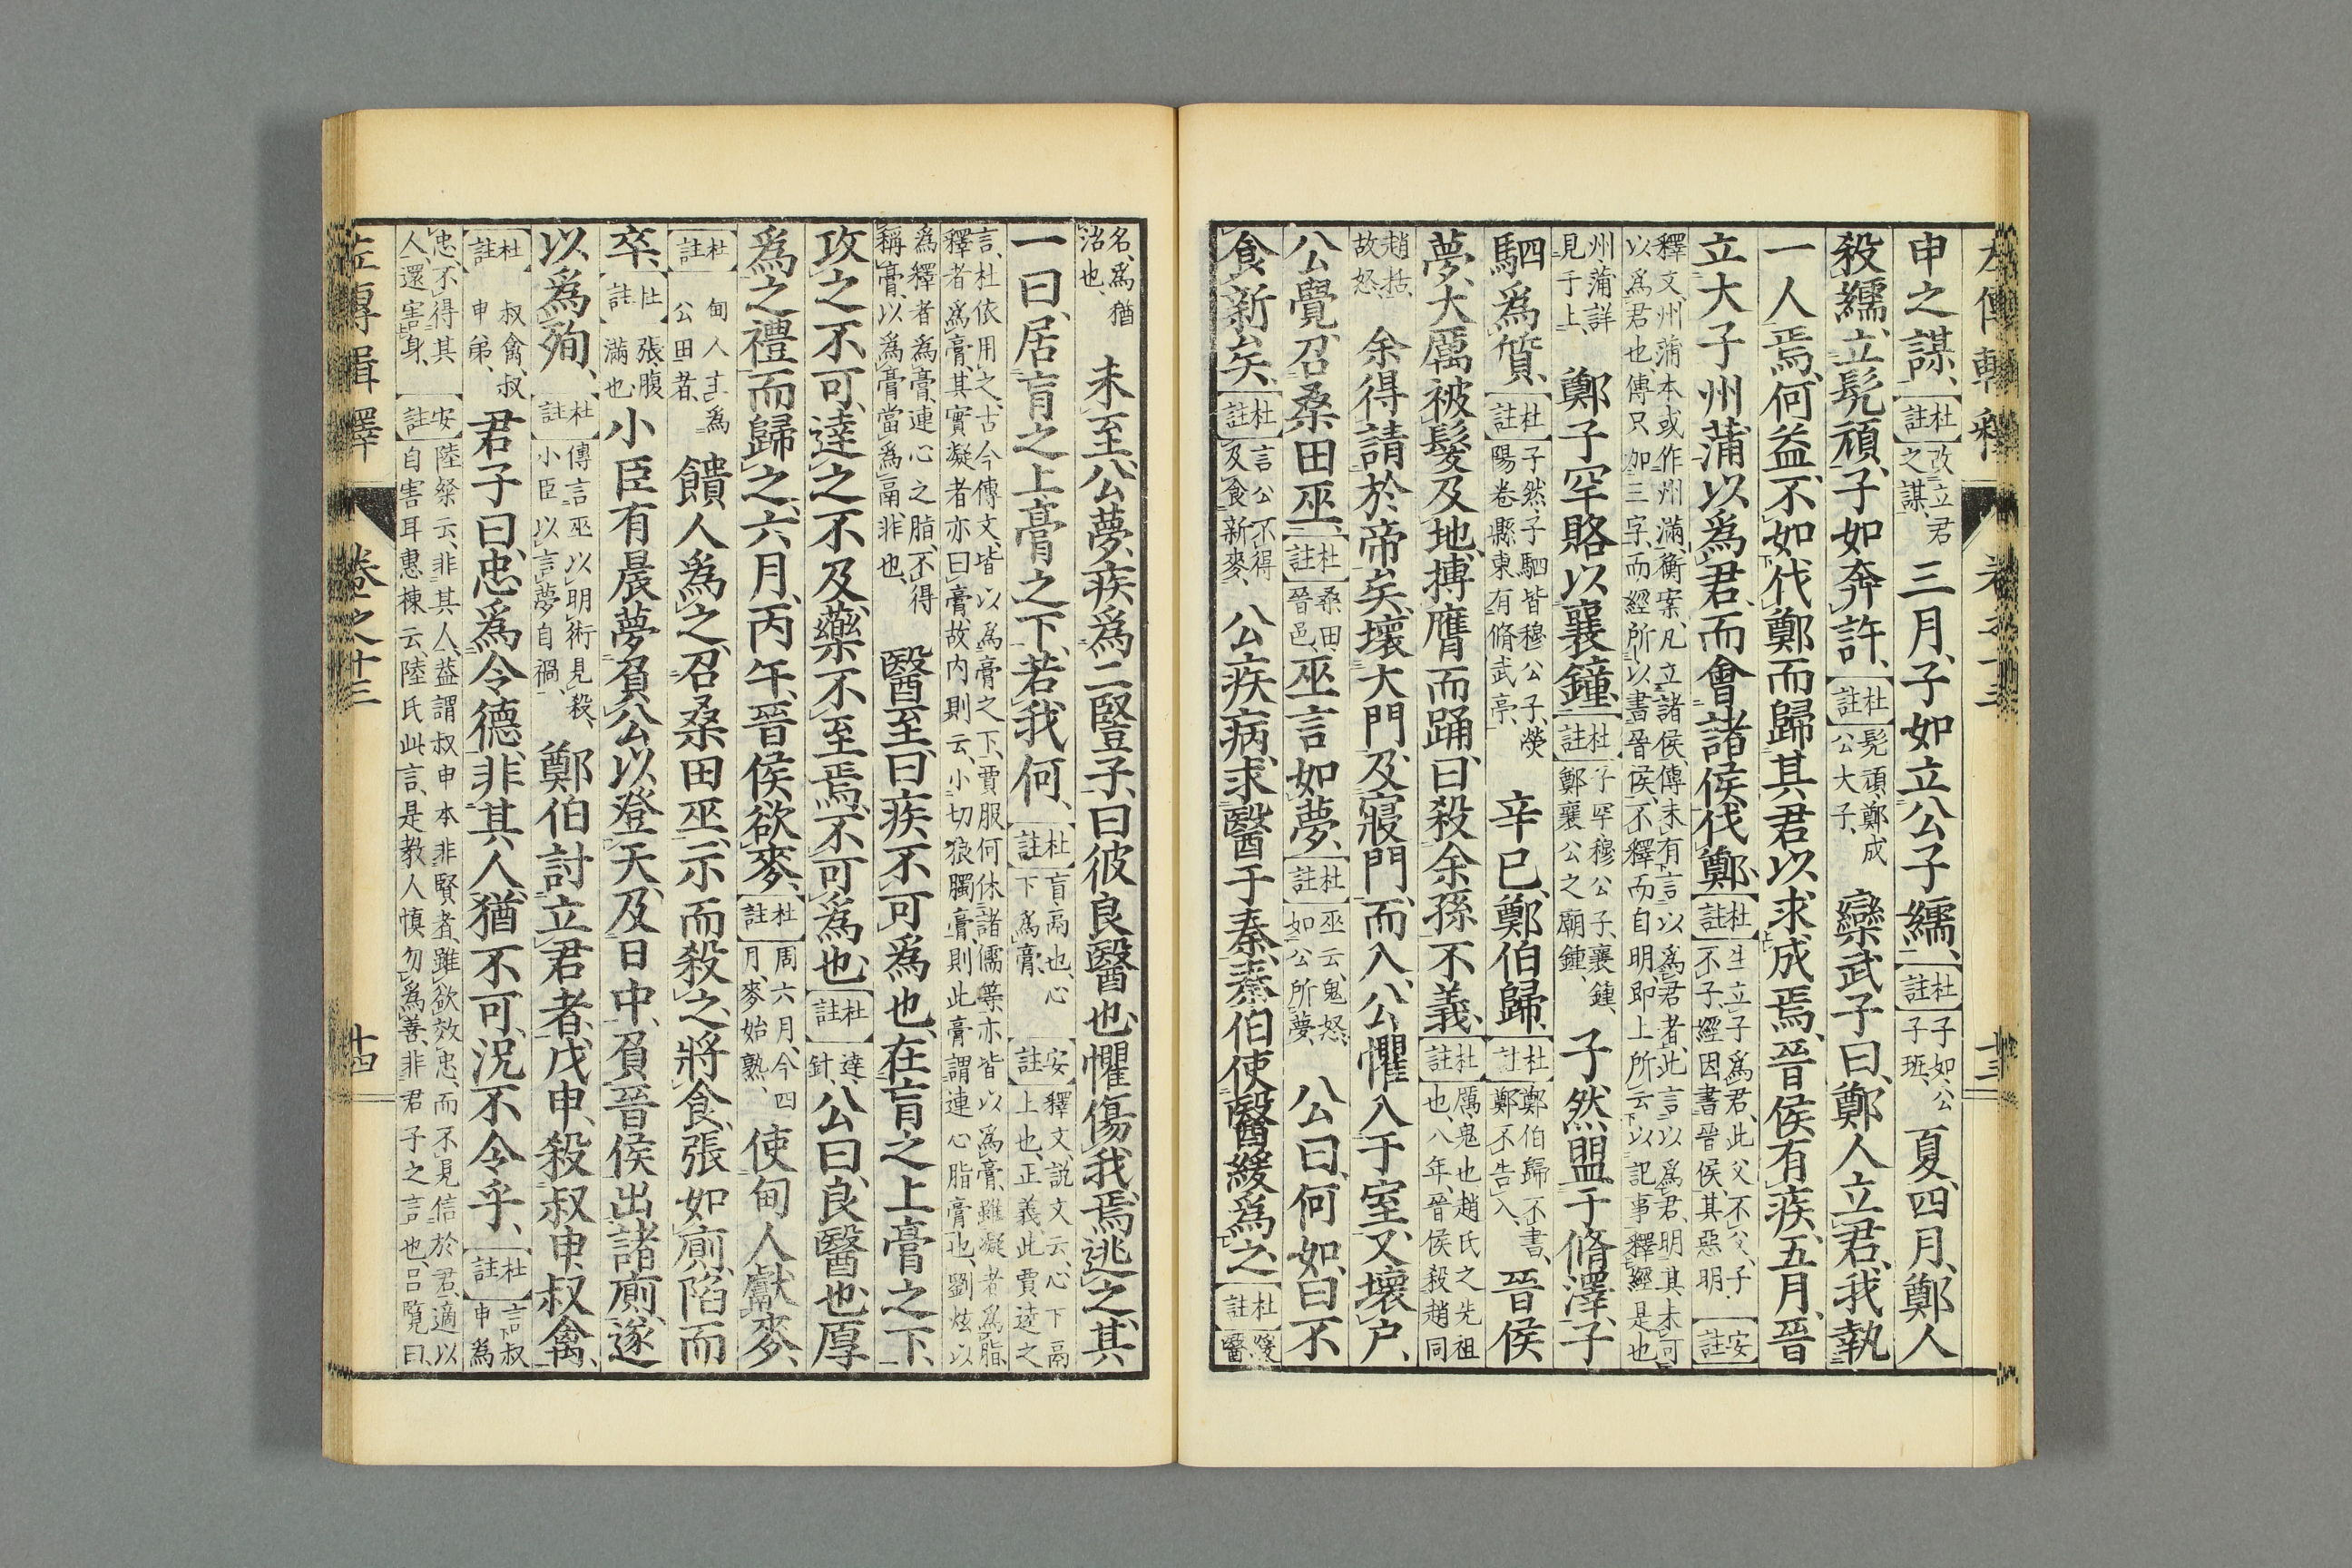 左傳輯釋 卷之十三 十三
申之謀、杜註改立君之謀、三月、子如立公子繻、杜註子如、公子班、夏、四月、鄭人
殺繻、立髠頑、子如奔許、杜註髠頑、鄭成公大子、欒武子曰、鄭人立君、我執
一人焉、何益、不如伐鄭而歸其君、以求成焉、晉侯有疾、五月、晉
立大子州蒲以爲君、而會諸侯伐鄭、杜註生立子爲君、此父不父、子不子、經因書晉侯、其惡明、安註
釋文、州蒲本或作州滿、衡案、凡立諸侯、傳未有言以爲君者、此言以爲君、明其未可
以爲君也、傳只加三字、而經所以書晉侯、不釋而自明、即上所云以記事釋經是也、
州蒲詳見于上、鄭子罕賂以襄鐘、杜註子罕、穆公子、襄鍾、鄭襄公之廟鍾、子然盟于脩澤、子
駟爲質、杜註子然子駟、皆穆公子、滎陽卷縣東有脩武亭、辛巳、鄭伯歸、杜註鄭伯歸不書、鄭不告入、晉侯
夢、大厲被髮及地、搏膺而踊、曰、殺余孫不義、杜註厲、鬼也、趙氏之先祖也、八年、晉侯殺趙同
趙括、故怒、余得請於帝矣、壞大門、及寢門、而入、公懼、入于室、又壞戶、
公覺、召桑田巫、杜註桑田、晉邑、巫言如夢、杜註巫云、鬼怒、如公所夢、公曰、何如、曰、不
食新矣、杜註言公不得及食新麥、公疾病、求醫于秦、秦伯使醫緩爲之、杜註緩、醫
名、爲猶治也、未至、公夢、疾爲二豎子、曰、彼良醫也、懼傷我、焉逃之、其
一曰、居肓之上、膏之下、若我何、杜註肓、鬲也、心下爲膏、安註釋文、說文云、心下鬲上也、正義、此賈逵之
言、杜依用之、古今傳文、皆以爲膏之下、賈服何休諸儒等、亦皆以爲膏、雖凝者爲脂、
釋者爲膏、其實凝者亦曰膏、故內則云、小切狼臅膏、則此膏謂連心脂膏也、劉炫以
爲釋者爲膏、連心之脂、不得稱膏、以爲膏當爲鬲、非也、醫至、曰、疾不可爲也、在肓之上、膏之下、
攻之不可、達之不及、藥不至焉、不可爲也、杜註達、針、公曰、良醫也、厚
爲之禮、而歸之、六月、丙午、晉侯欲麥、杜註周六月、今四月、麥始熟、使甸人獻麥、
杜註甸人、主爲公田者、饋人爲之、召桑田巫、示而殺之、將食、張、如廁、陷而
卒、杜註張、腹滿也、小臣有晨夢負公以登天、及日中、負晉侯出諸廁、遂
以爲殉、杜註傳言巫以明術見殺、小臣以言夢自禍、鄭伯討立君者、戊申、殺叔申、叔禽、
杜註叔禽、叔申弟、君子曰、忠爲令德、非其人、猶不可、況不令乎、杜註言叔申爲
忠、不得其人、還害身、安註陸粲云、非其人、益謂叔申本非賢者、雖欲效忠、而不見信於君、適以
自害耳、惠棟云、陸氏此言、是教人慎勿爲善、非君子之言也、呂覽曰、
左傳輯釋 卷之十三 十四